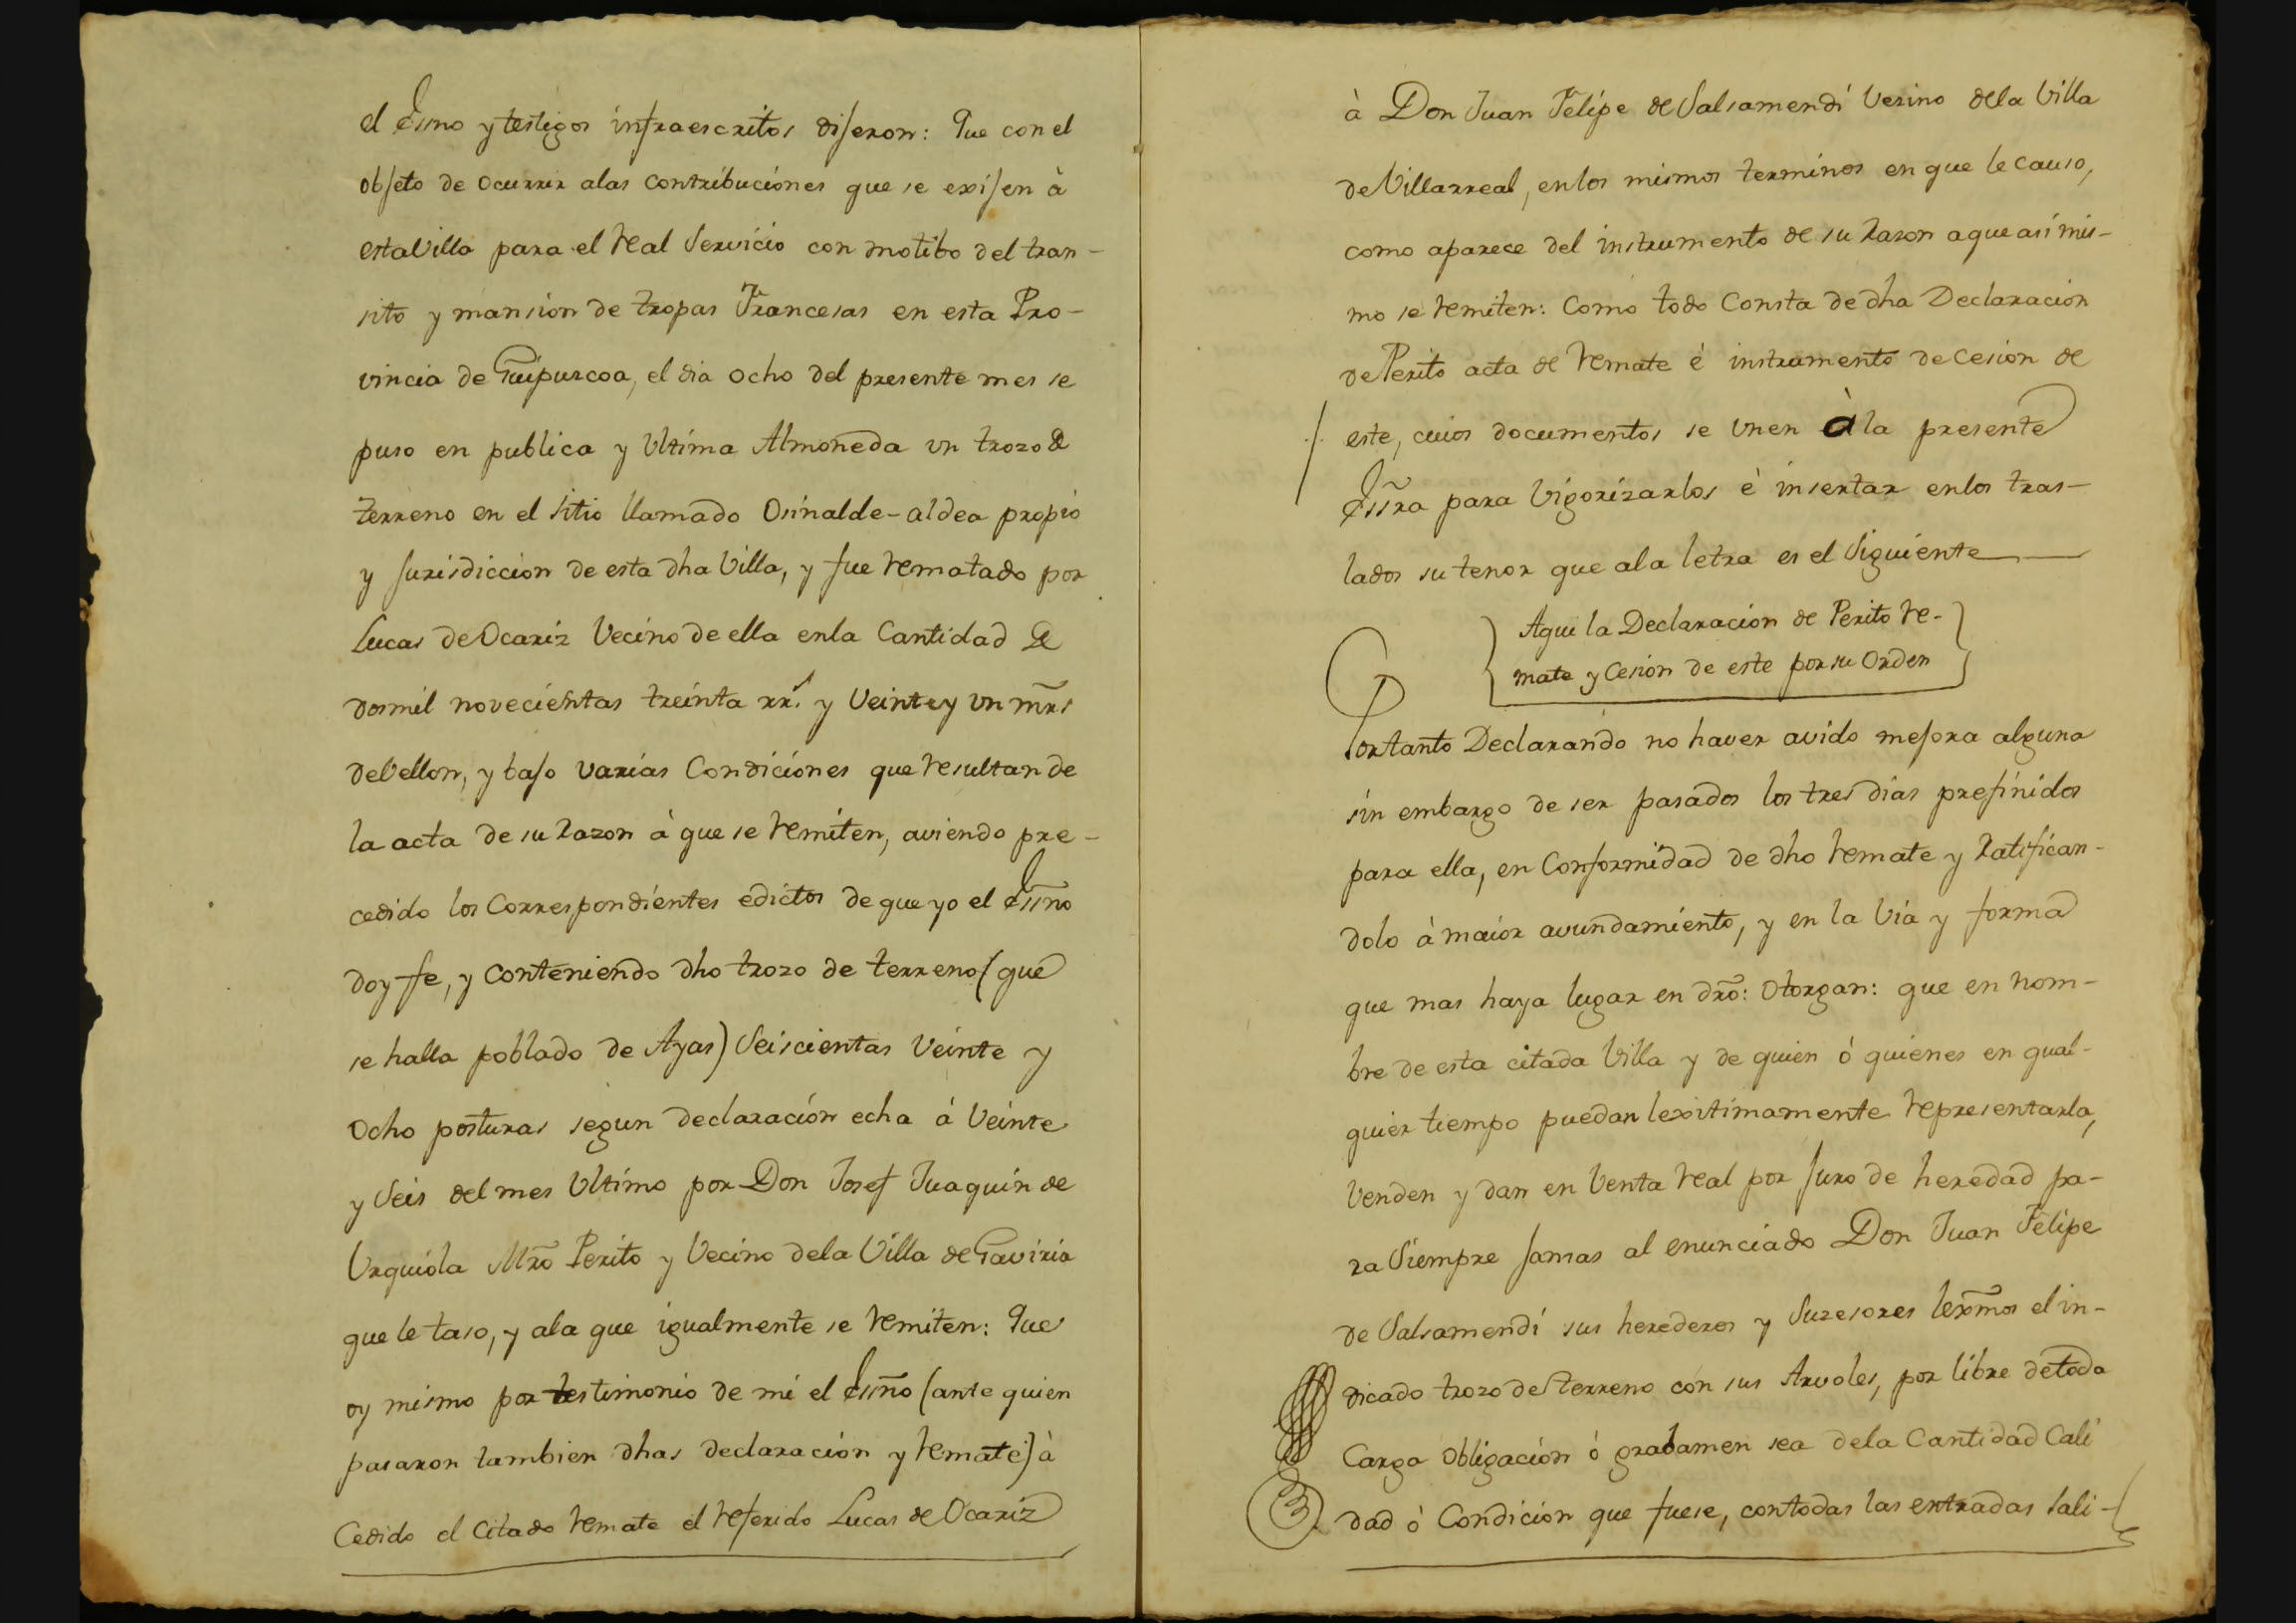 el Essno y testigos infraescritos dijeron: Que con el
objeto de ocurrir alas contribuciones que se exijen à
esta Villa para el Real Servicio con motibo del tran-
sito y mansion de tropas Francesas en esta Pro-
vincia de Guipurcoa, el dia ocho del presente mes se
puso en publica y Ultima Almoneda un trozo de
terreno en el sitio llamado Osinalde-aldea propio
y jurisdiccion de esta dha Villa, y fue rematado por
Lucas de Ocariz Vecino de ella enla Cantidad de
dosmil novecientas treinta rr.s y Veinte y un mrs
de Vellon, y bajo varias Condiciones que resultan de
la acta de su Razon à que se remiten, aviendo pre-
cedido los Correspondientes edictos de que yo el Essño
doy fe, y conteniendo dho trozo de terreno (que
se halla poblado de Ayas) Seiscientas Veinte y
Ocho posturas segun declaración echa à Veinte
y Seis del mes Ultimo por Don Josef Juaquin de
Urquiola Mro Perito y Vecino dela Villa de Gaviria
que le taso, y ala que igualmente se remiten: Que
oy mismo por testimonio de mi el Essño (ante quien
pasaron tambien dhas declaración y remate) à
Cedido el Citado remate el referido Lucas de Ocariz
à Don Juan Felipe de Salsamendi Vezino dela Villa
de Villarreal, enlos mismos terminos en que le causo,
como aparece del instrumento de su Razon a que asimis-
mo se remiten: Como todo Consta de dha Declaracion
de Perito acta de remate è instrumento de Cesion de
este, cuios documentos se unen à la presente
Essra para Vigorizarlos è insertar enlos tras-
lados su tenor que ala letra es el Siguiente
Aqui la Declaración de Perito re-
mate y Cesion de este por su Orden
Portanto Declarando no haver avido mejora alguna
sin embargo de ser pasados los tres dias prefinidos
para ella, en Conformidad de dho remate y Ratifican-
dolo à maior avundamiento, y en la Via y forma
que mas haya lugar en dro: Otorgan: que en nom-
bre de esta citada Villa y de quien ò quienes en qual-
quier tiempo puedan lexitimamente representarla,
Venden y dan en Venta real por juro de heredad pa-
ra Siempre jamas al enunciado Don Juan Felipe
de Salsamendi sus herederos y Suzesores lexmos el in-
dicado trozo de terreno con sus Arvoles, por libre de toda
Carga Obligación ò grabamen sea dela Cantidad Cali
dad ò Condicion que fuese, contodas las entradas sali-